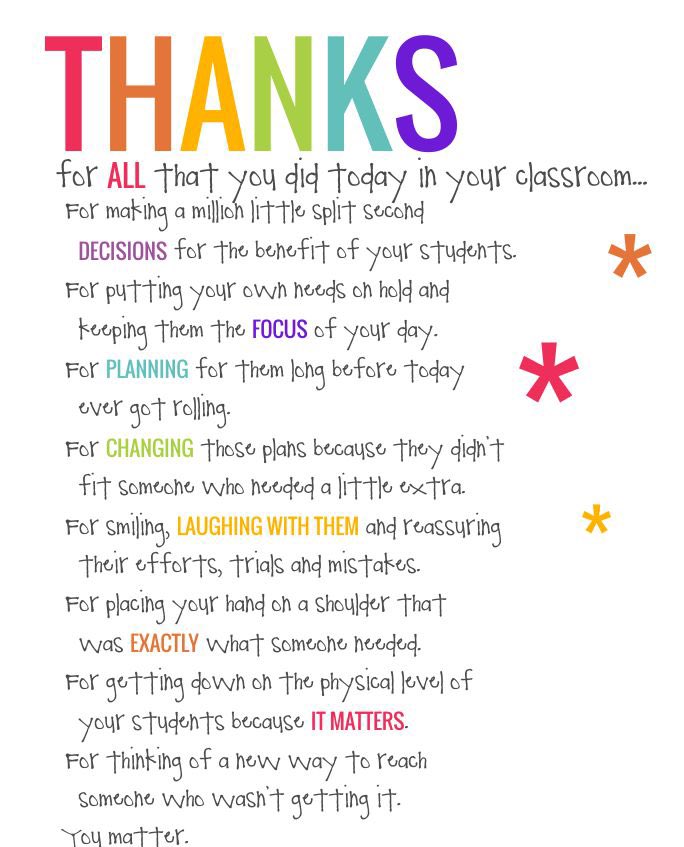 THANKS
for ALL that you did today in your classroom...
For making a million little split second
DECISIONS for the benefit of your students.
For putting your own needs on hold and
keeping them the FOCUS of your day.
For PLANNING for them long before today
ever got rolling.
For CHANGING those plans because they didn't
fit someone who needed a little extra.
For smiling, LAUGHING WITH THEM and reassuring
their efforts, trials and mistakes.
For placing your hand on a shoulder that
was EXACTLY what someone needed.
For getting down on the physical level of
your students because IT MATTERS.
For thinking of a new way to reach
someone who wasn't getting it.
You matter.